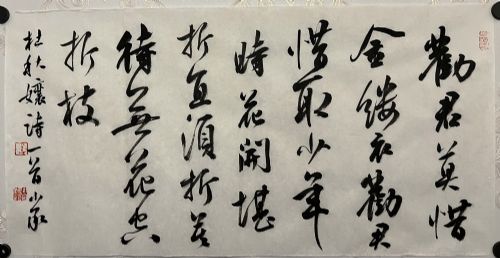 勸君莫惜
金縷衣勸君
惜取少年
時花開堪
折直須折莫
待無花空
折枝
杜秋孃詩一首